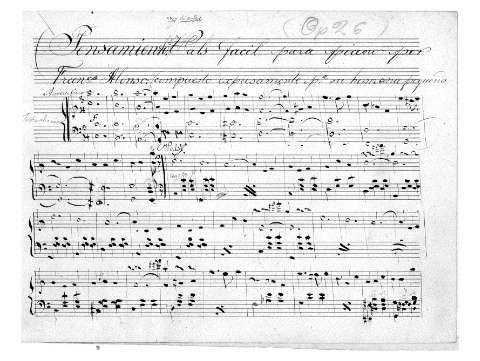 (Op 26)
Pensamiento Vals facil para piano por
Franco Alonso, compuesto expresamente p.ª su hermana pequeña